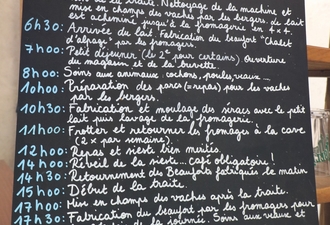 de la traite. Nettoyage de la machine et
mise en champs des vaches par les bergers. Le lait
est acheminé jusqu'à la fromagerie en 4x4.
6h30: Arrivée du lait. Fabrication du Beaufort "Chalet
d'alpage" par les fromagers.
7h00: Petit déjeuner (le 2° pour certains). Ouverture
du magasin et de la buvette.
8h00: Soins aux animaux: cochons, poules, veaux...
10h00: Préparation des parcs (=repas) pour les vaches
par les bergers.
10h30: Fabrication et moulage des séracs avec le petit
lait puis lavage de la fromagerie.
11h00: Frotter et retourner les fromages à la cave
(2 x par semaine).
12h00: Repas et sieste bien mérités.
14h00: Réveil de la sieste... café obligatoire!
14h30: Retournement des Beauforts fabriqués le matin
15h00: Début de la traite.
17h00: Mise en champs des vaches après la traite.
17h30: Fabrication du beaufort par les fromagers pour
de la journée. Soins aux veaux et